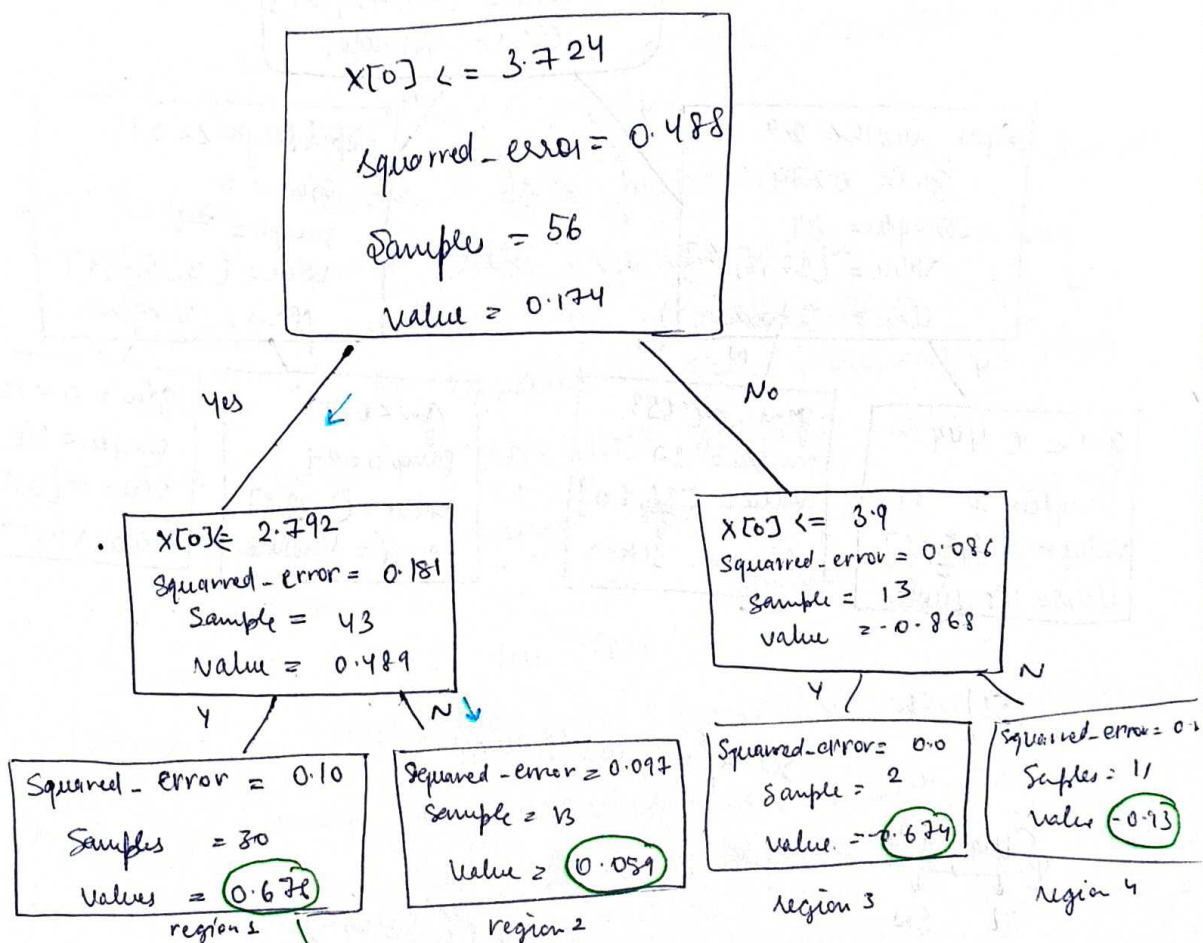 X[0] <= 3.724
squarred_error = 0.488
Samples = 56
value = 0.174
Yes
No
X[0] <= 2.792
Squarred_error = 0.181
Sample = 43
value = 0.489
X[0] <= 3.9
Squarred_error = 0.086
Sample = 13
value = -0.868
Y
N
Y
N
Squared_error = 0.10
Samples = 30
Values =
region 1
Squared_error = 0.097
Sample = 13
Value = 0.059
region 2
Squared_error = 0.0
Sample = 2
value = -0.674
region 3
Squared_error =
Samples = 11
value -0.93
region 4